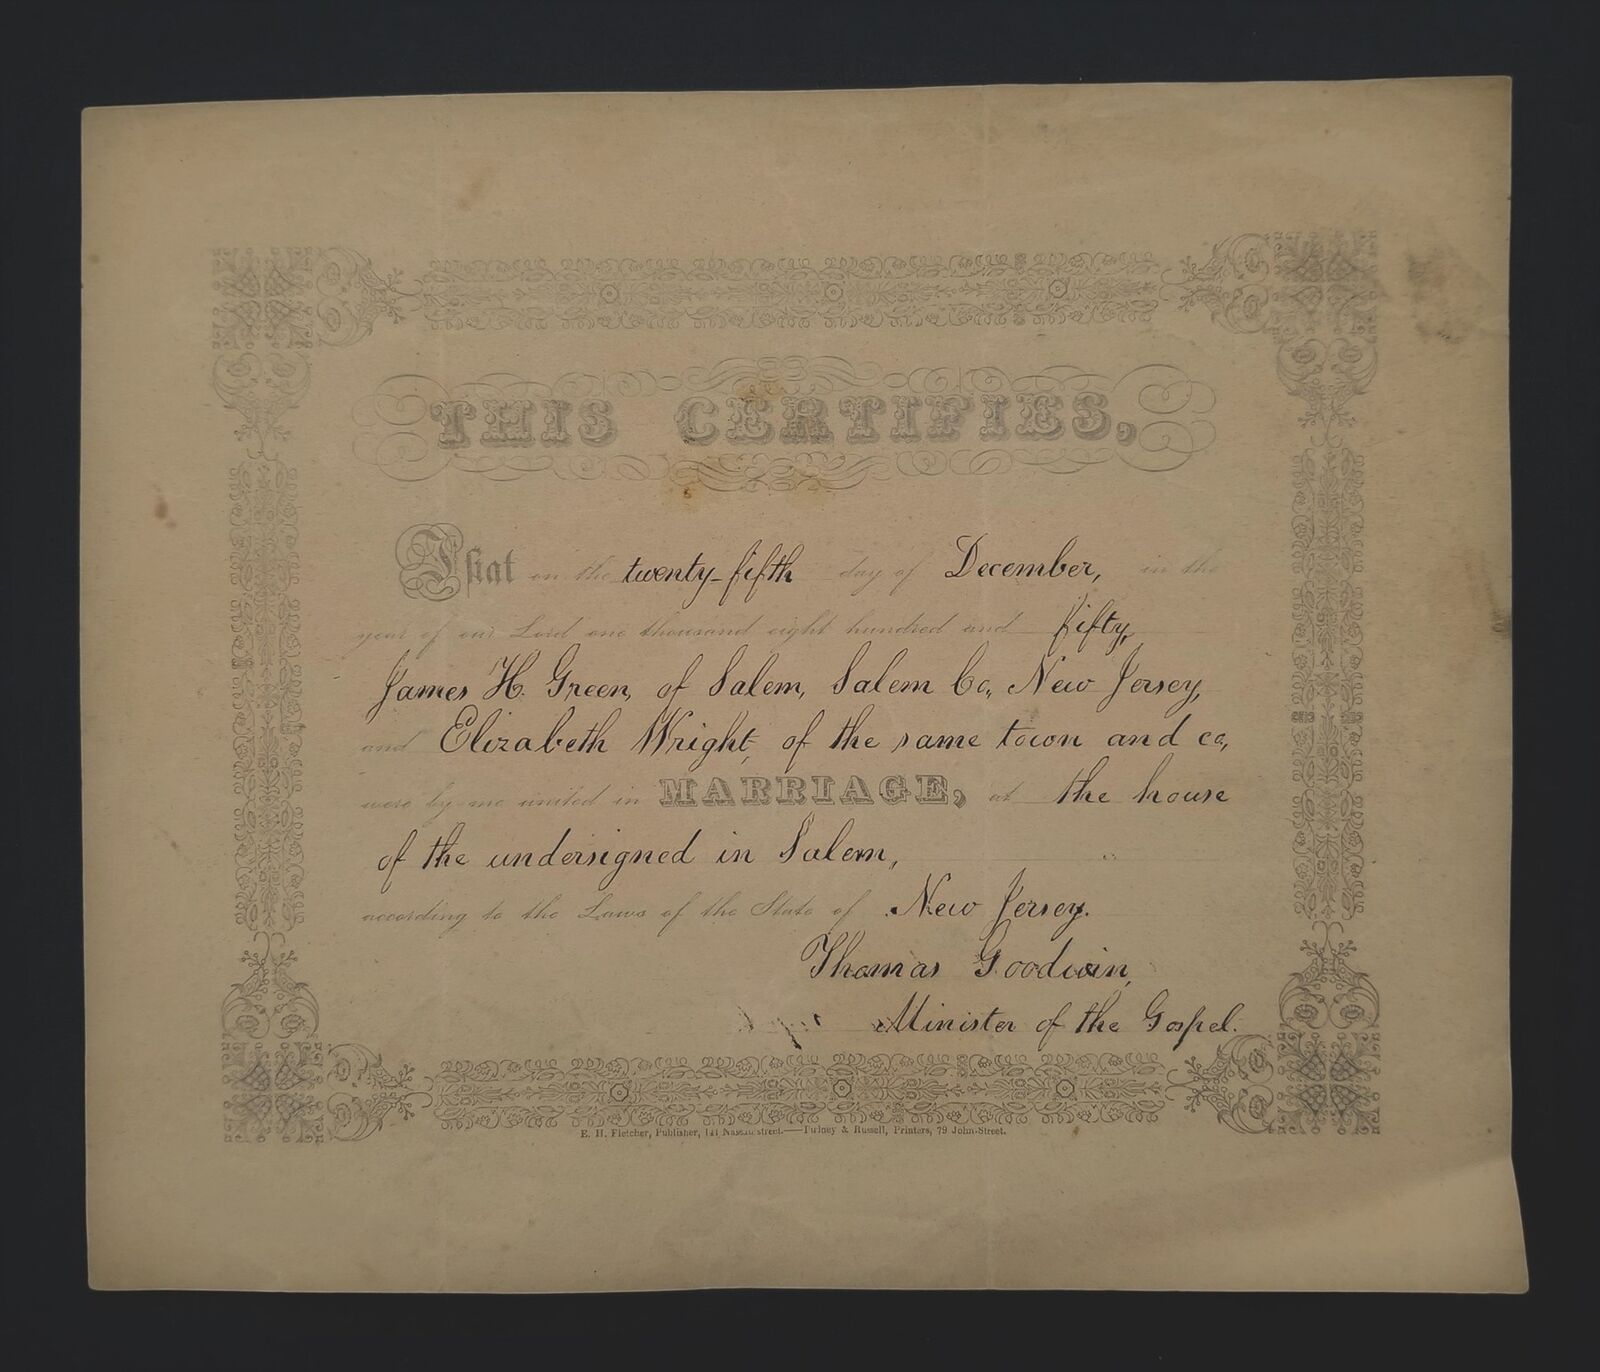 THIS CERTIFIES,
That on the twenty-fifth day of December, in the
year of our Lord one thousand eight hundred and fifty,
James H. Green, of Salem, Salem Co, New Jersey,
and Elizabeth Wright, of the same town and co,
were by me united in MARRIAGE, at the house
of the undersigned in Salem,
according to the Laws of the State of New Jersey.
Thomas Goodwin,
Minister of the Gospel.
E. H. Fletcher, Publisher, 141 Nassau street.—Pudney & Russell, Printers, 79 John-Street.